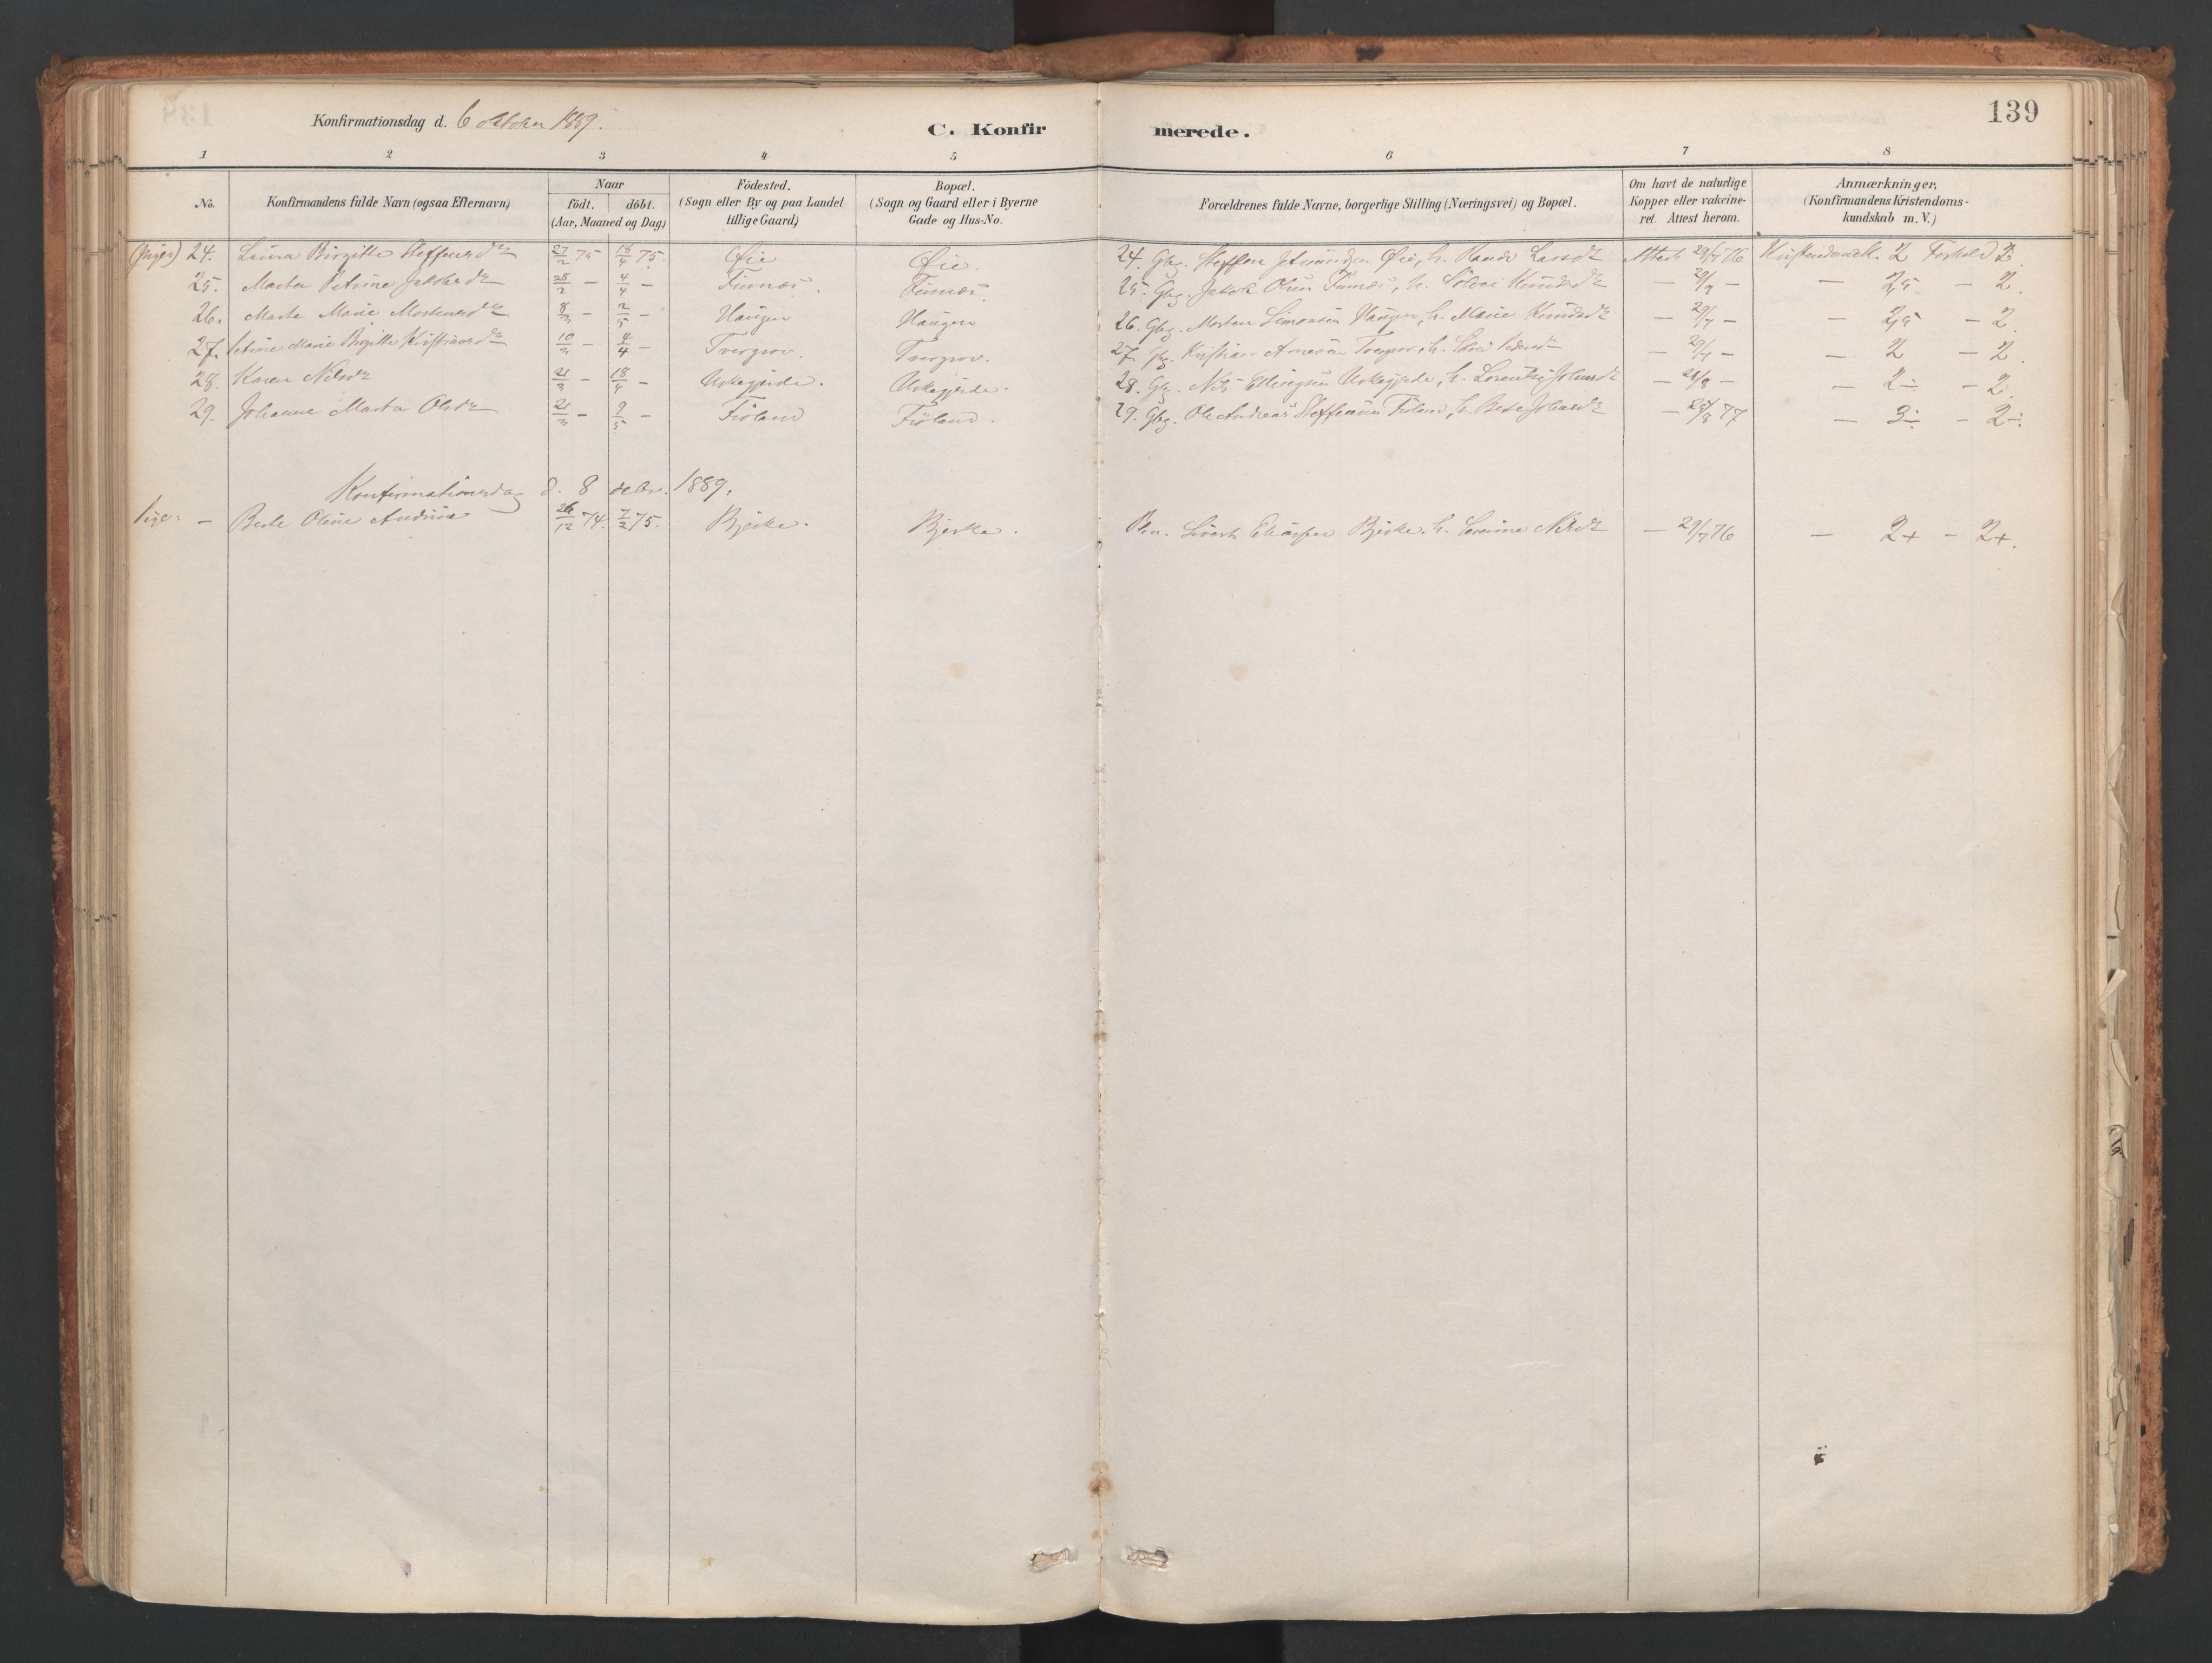 Konfirmationsdag d. 6 oktober 1889.
C. Konfirmerede.
139
1 2 3 4 5 6 7 8
No.
Konfirmandens fulde Navn (ogsaa Efternavn)
Naar
födt. döbt.
(Aar, Maaned og Dag)
Födested.
(Sogn eller By og paa Landet
tillige Gaard)
Bopæl.
(Sogn og Gaard eller i Byerne
Gade og Hus-No.
Forældrenes fulde Navne, borgerlige Stilling (Næringsvei) og Bopæl.
Om havt de naturlige
Kopper eller vakcine-
ret. Attest herom.
Anmærkninger,
(Konfirmandens Kristendoms-
kundskab m. V.)
(Piger) 24. Laura Birgitte Steffensdr 27/2 75 18/4 75. Øie Øie. 24. Gbr. Steffen Øie, h. Rande Larsdr Attest 29/7 76 Kristendomsk. 2 Forhold 2.
25. Marta Petrine Jakobsdr 28/2 – 4/4 – Finnæs. Finnæs. 25. Gbr. Jakob Olsen Finnæs, h. Sölvei Knudsdr – 29/7 – – 2,5 – 2.
26. Marte Marie Mortensdr 8/3 – 2/5 – Haugen Haugen 26. Gbr. Morten Simonsen Haugen, h. Marie Knudsdr – 29/7 – – 2,5 – 2.
27. Petrine Marie Birgitte Kristiansdr 10/3 – 4/4 – Tvergrov. Tvergrov. 27. Gbr. Kristian Arnesen Tvergrov, h. – 29/7 – – 2 – 2.
28. Karen Nilsdr 21/3 – 18/4 – Urkegjerde. Urkegjerde. 28. Gbr. Nils Ellingsen Urkegjerde, h. Lorentse Johansdr – – 2÷ – 2.
29. Johanne Marta Olsdr 21/3 – 9/5 – Fiöland Fiöland. 29. Gbr. Ole Andreas Steffensen Fiöland, h. Johansdr – 77 – 3÷ – 2÷.
Konfirmationsdag d. 8 decbr. 1889.
Pige: – Berte Oline Andrea 26/12 74. 7/2 75. Bjerke. Bjerke. Bjerke, h. Nilsdr – 29/7 76 – 2+ – 2+.